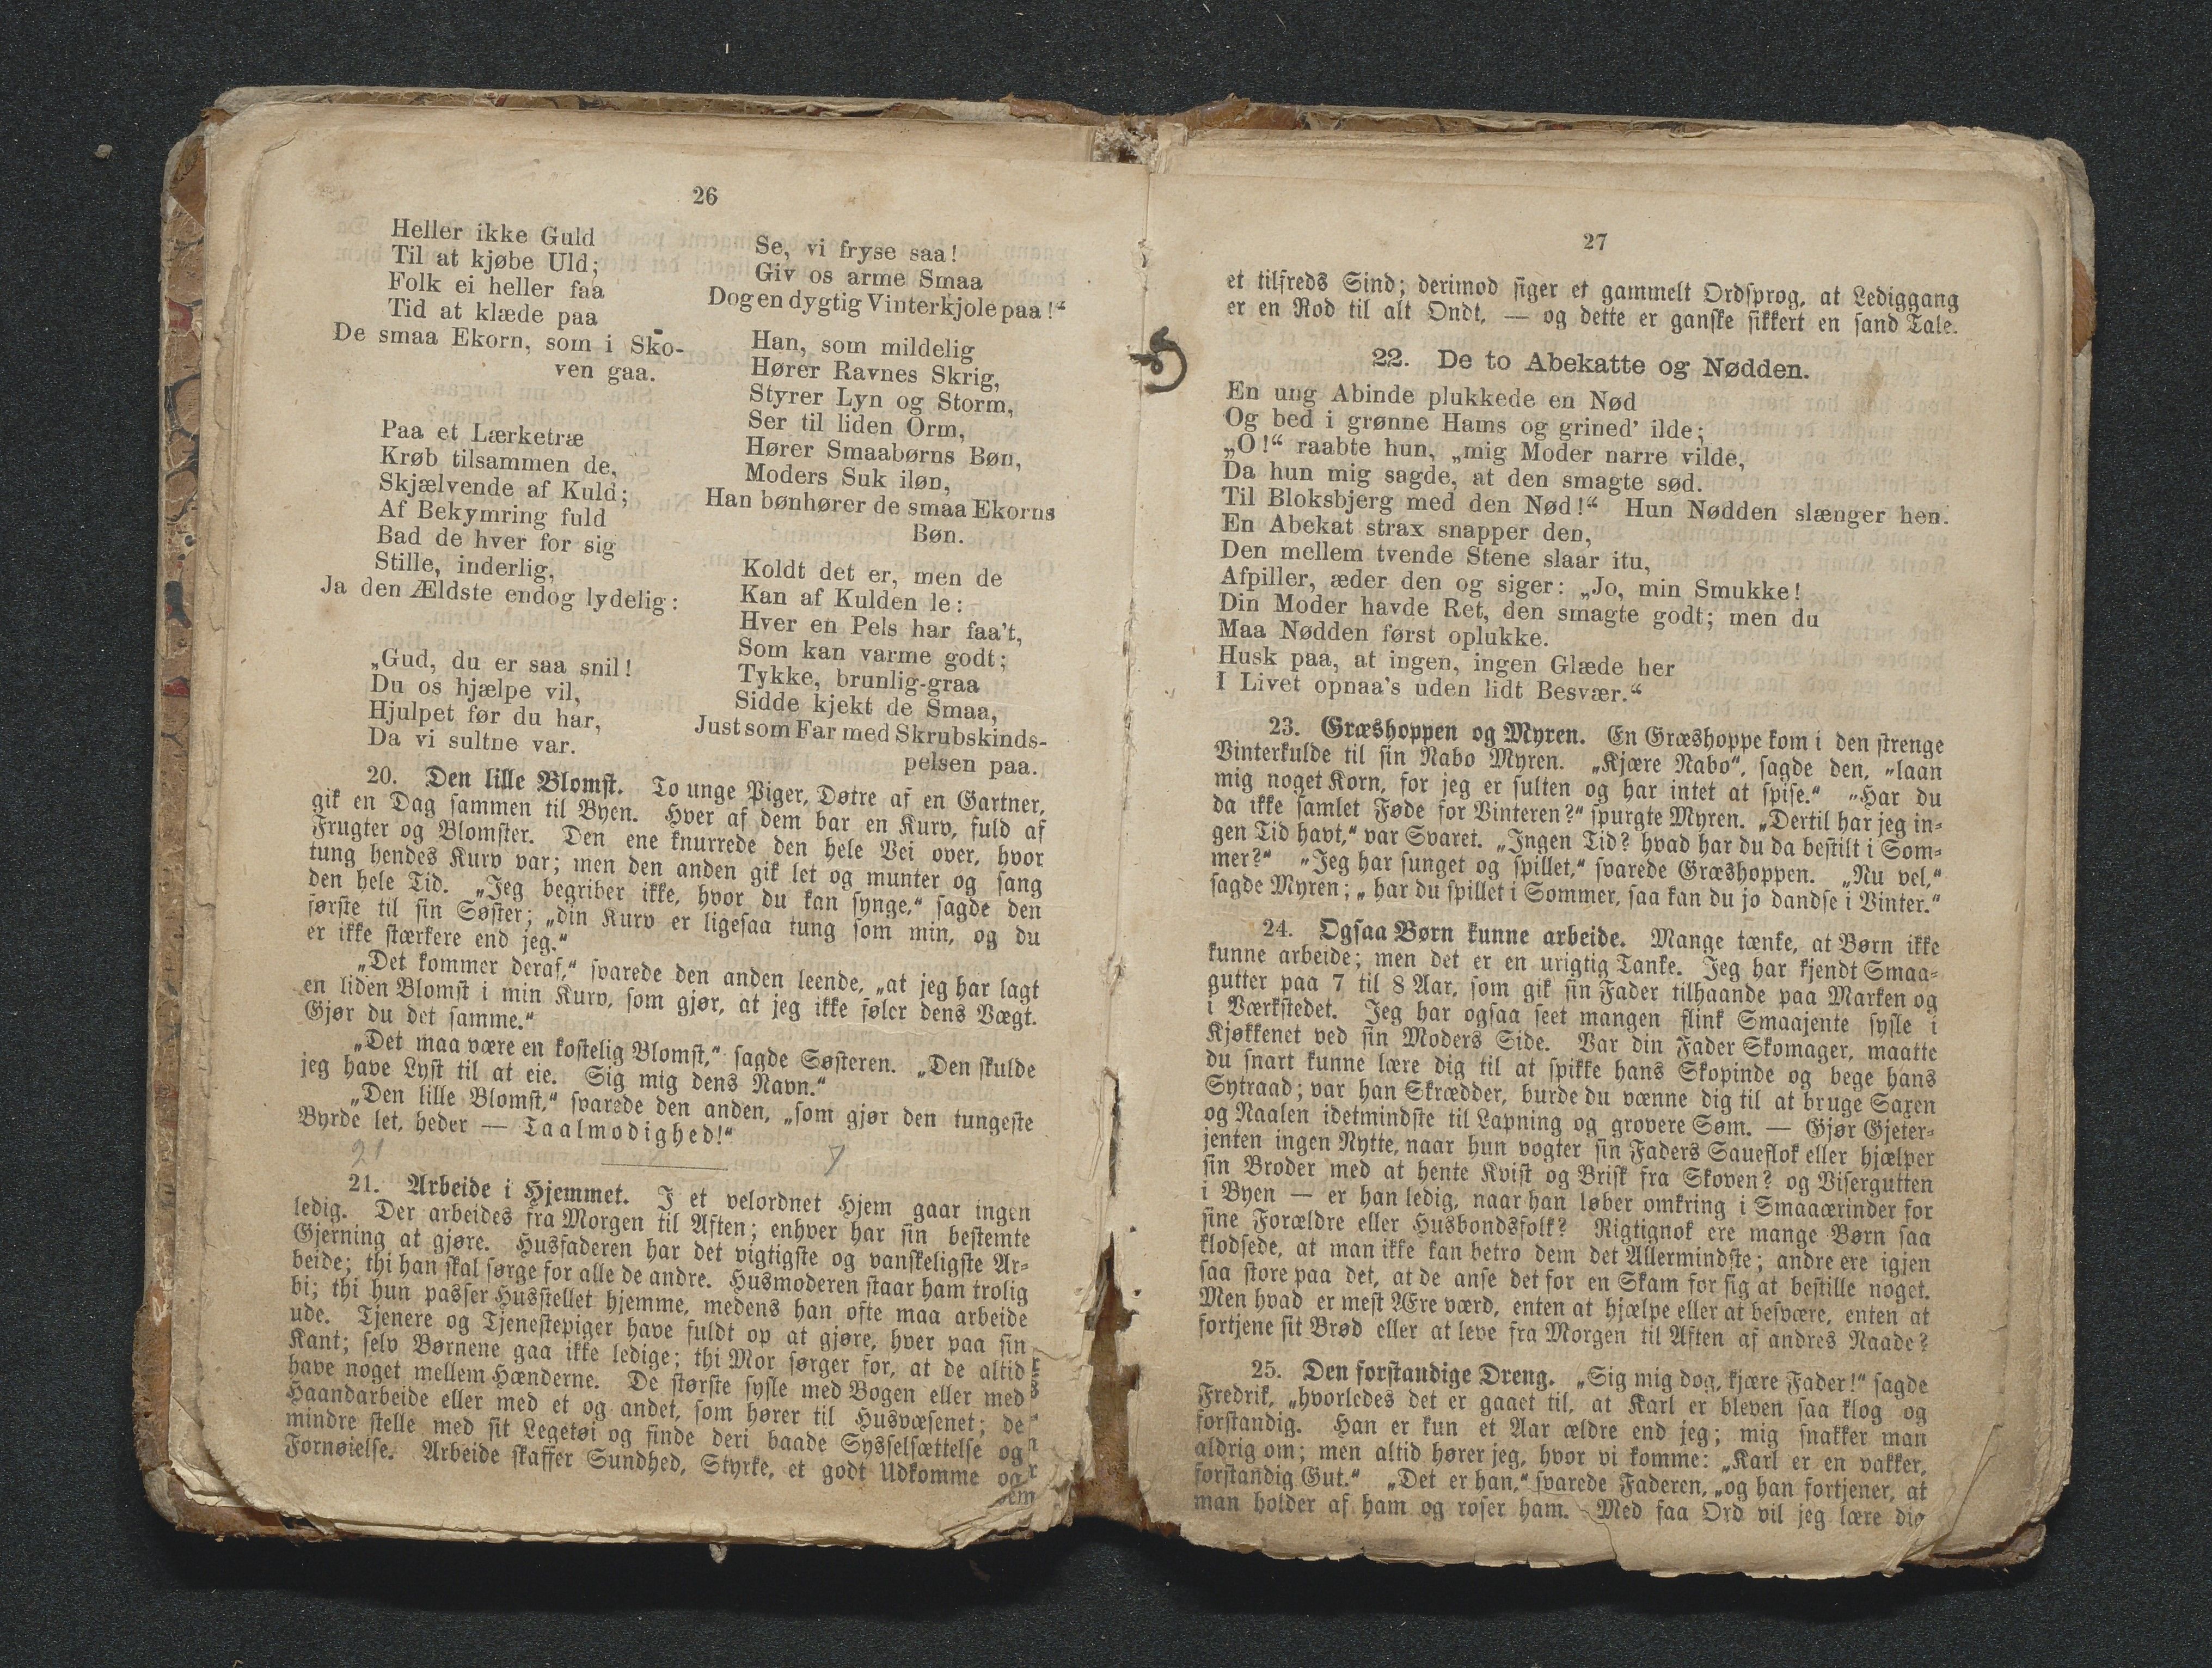 26
Heller ikke Guld
Til at kjøbe Uld;
Folk ei heller faa
Tid at klæde paa
De smaa Ekorn, som i Sko-
ven gaa.
Paa et Lærketræ
Krøb tilsammen de,
Skjælvende af Kuld;
Af Bekymring fuld
Bad de hver for sig
Stille, inderlig,
Ja den Ældste endog lydelig:
„Gud, du er saa snil!
Du os hjælpe vil,
Hjulpet før du har,
Da vi sultne var.
Se, vi fryse saa!
Giv os arme Smaa
Dog en dygtig Vinterkjole paa!“
Han, som mildelig
Hører Ravnes Skrig,
Styrer Lyn og Storm,
Ser til liden Orm,
Hører Smaabørns Bøn,
Moders Suk iløn,
Han bønhører de smaa Ekorns
Bøn.
Koldt det er, men de
Kan af Kulden le:
Hver en Pels har faa't,
Som kan varme godt;
Tykke, brunlig-graa
Sidde kjekt de Smaa,
Just som Far med Skrubskinds-
pelsen paa.
20. Den lille Blomst. To unge Piger, Døtre af en Gartner,
gik en Dag sammen til Byen. Hver af dem bar en Kurv, fuld af
Frugter og Blomster. Den ene knurrede den hele Vei over, hvor
tung hendes Kurv var; men den anden gik let og munter og sang
den hele Tid. „Jeg begriber ikke, hvor du kan synge,“ sagde den
første til sin Søster; „din Kurv er ligesaa tung som min, og du
er ikke stærkere end jeg.“
„Det kommer deraf,“ svarede den anden leende, „at jeg har lagt
en liden Blomst i min Kurv, som gjør, at jeg ikke føler dens Vægt.
Gjør du det samme.“
„Det maa være en kostelig Blomst,“ sagde Søsteren. „Den skulde
jeg have Lyst til at eie. Sig mig dens Navn.“
„Den lille Blomst,“ svarede den anden, „som gjør den tungeste
Byrde let, heder — Taalmodighed!“
21 7
21. Arbeide i Hjemmet. I et velordnet Hjem gaar ingen
ledig. Der arbeides fra Morgen til Aften; enhver har sin bestemte
Gjerning at gjøre. Husfaderen har det vigtigste og vanskeligste Ar-
beide; thi han skal sørge for alle de andre. Husmoderen staar ham trolig
bi; thi hun passer Husstellet hjemme, medens han ofte maa arbeide
ude. Tjenere og Tjenestepiger have fuldt op at gjøre, hver paa sin
Kant; selv Børnene gaa ikke ledige; thi Mor sørger for, at de altid
have noget mellem Hænderne. De største sysle med Bogen eller med
Haandarbeide eller med et og andet, som hører til Husvæsenet; de
mindre stelle med sit Legetøi og finde deri baade Sysselsættelse og
Fornøielse. Arbeide skaffer Sundhed, Styrke, et godt Udkomme og
27
et tilfreds Sind; derimod siger et gammelt Ordsprog, at Lediggang
er en Rod til alt Ondt, — og dette er ganske sikkert en sand Tale.
22. De to Abekatte og Nødden.
En ung Abinde plukkede en Nød
Og bed i grønne Hams og grined' ilde;
„O!“ raabte hun, „mig Moder narre vilde,
Da hun mig sagde, at den smagte sød.
Til Bloksbjerg med den Nød!“ Hun Nødden slænger hen.
En Abekat strax snapper den,
Den mellem tvende Stene slaar itu,
Afpiller, æder den og siger: „Jo, min Smukke!
Din Moder havde Ret, den smagte godt; men du
Maa Nødden først oplukke.
Husk paa, at ingen, ingen Glæde her
I Livet opnaa's uden lidt Besvær.“
23. Græshoppen og Myren. En Græshoppe kom i den strenge
Vinterkulde til sin Nabo Myren. „Kjære Nabo“, sagde den, „laan
mig noget Korn, for jeg er sulten og har intet at spise.“ „Har du
da ikke samlet Føde for Vinteren?“ spurgte Myren. „Dertil har jeg in-
gen Tid havt,“ var Svaret. „Ingen Tid? hvad har du da bestilt i Som-
mer?“ „Jeg har sunget og spillet,“ svarede Græshoppen. „Nu vel,“
sagde Myren; „har du spillet i Sommer, saa kan du jo dandse i Vinter.“
24. Ogsaa Børn kunne arbeide. Mange tænke, at Børn ikke
kunne arbeide; men det er en urigtig Tanke. Jeg har kjendt Smaa-
gutter paa 7 til 8 Aar, som gik sin Fader tilhaande paa Marken og
i Værkstedet. Jeg har ogsaa seet mangen flink Smaajente sysle i
Kjøkkenet ved sin Moders Side. Var din Fader Skomager, maatte
du snart kunne lære dig til at spikke hans Skopinde og bege hans
Sytraad; var han Skrædder, burde du vænne dig til at bruge Saxen
og Naalen idetmindste til Lapning og grovere Søm. — Gjør Gjeter-
jenten ingen Nytte, naar hun vogter sin Faders Saueflok eller hjælper
sin Broder med at hente Kvist og Brisk fra Skoven? og Visergutten
i Byen — er han ledig, naar han løber omkring i Smaaærinder for
sine Forældre eller Husbondsfolk? Rigtignok ere mange Børn saa
klodsede, at man ikke kan betro dem det Allermindste; andre ere igjen
saa store paa det, at de anse det for en Skam for sig at bestille noget.
Men hvad er mest Ære værd, enten at hjælpe eller at besvære, enten at
fortjene sit Brød eller at leve fra Morgen til Aften af andres Naade?
25. Den forstandige Dreng. „Sig mig dog, kjære Fader!“ sagde
Fredrik, „hvorledes det er gaaet til, at Karl er bleven saa klog og
forstandig. Han er kun et Aar ældre end jeg; mig snakker man
aldrig om; men altid hører jeg, hvor vi komme: „Karl er en vakker,
forstandig Gut.“ „Det er han,“ svarede Faderen, „og han fortjener, at
man holder af ham og roser ham. Med faa Ord vil jeg lære dig